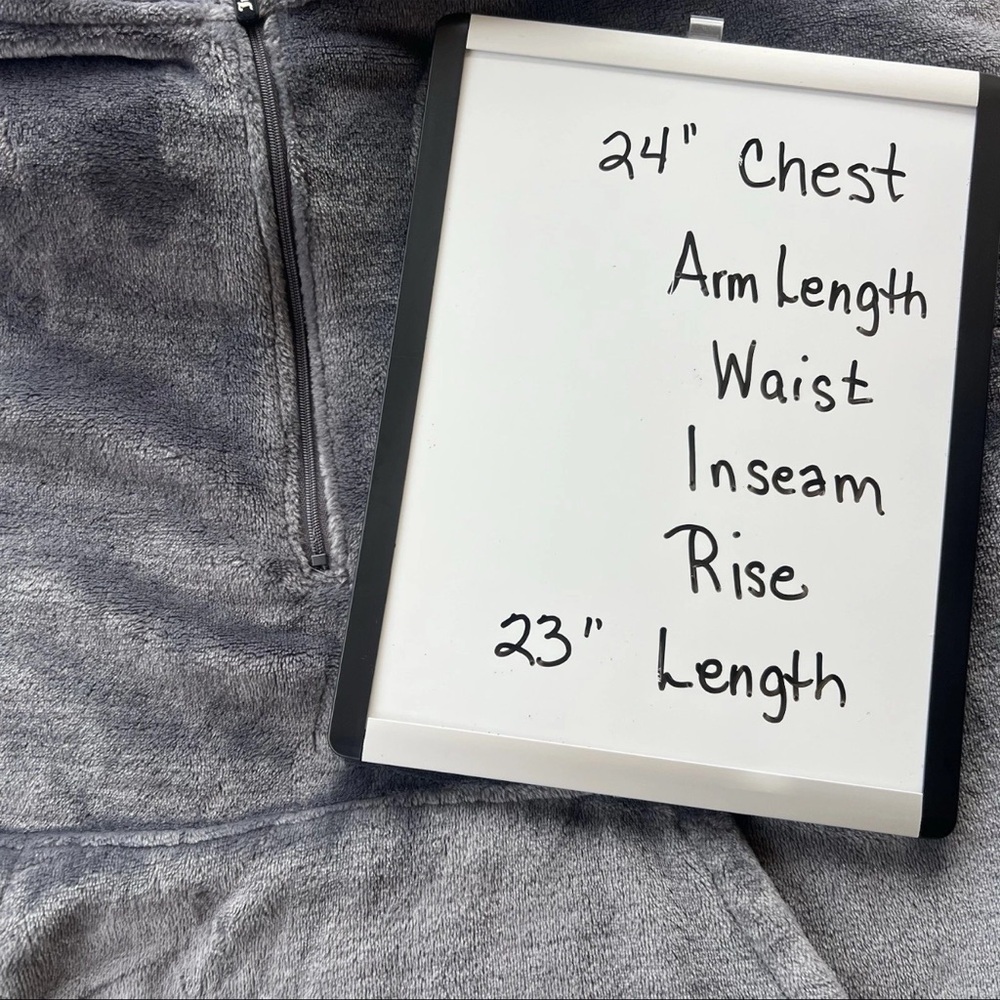 24" Chest
Arm Length
Waist
Inseam
Rise
23" Length